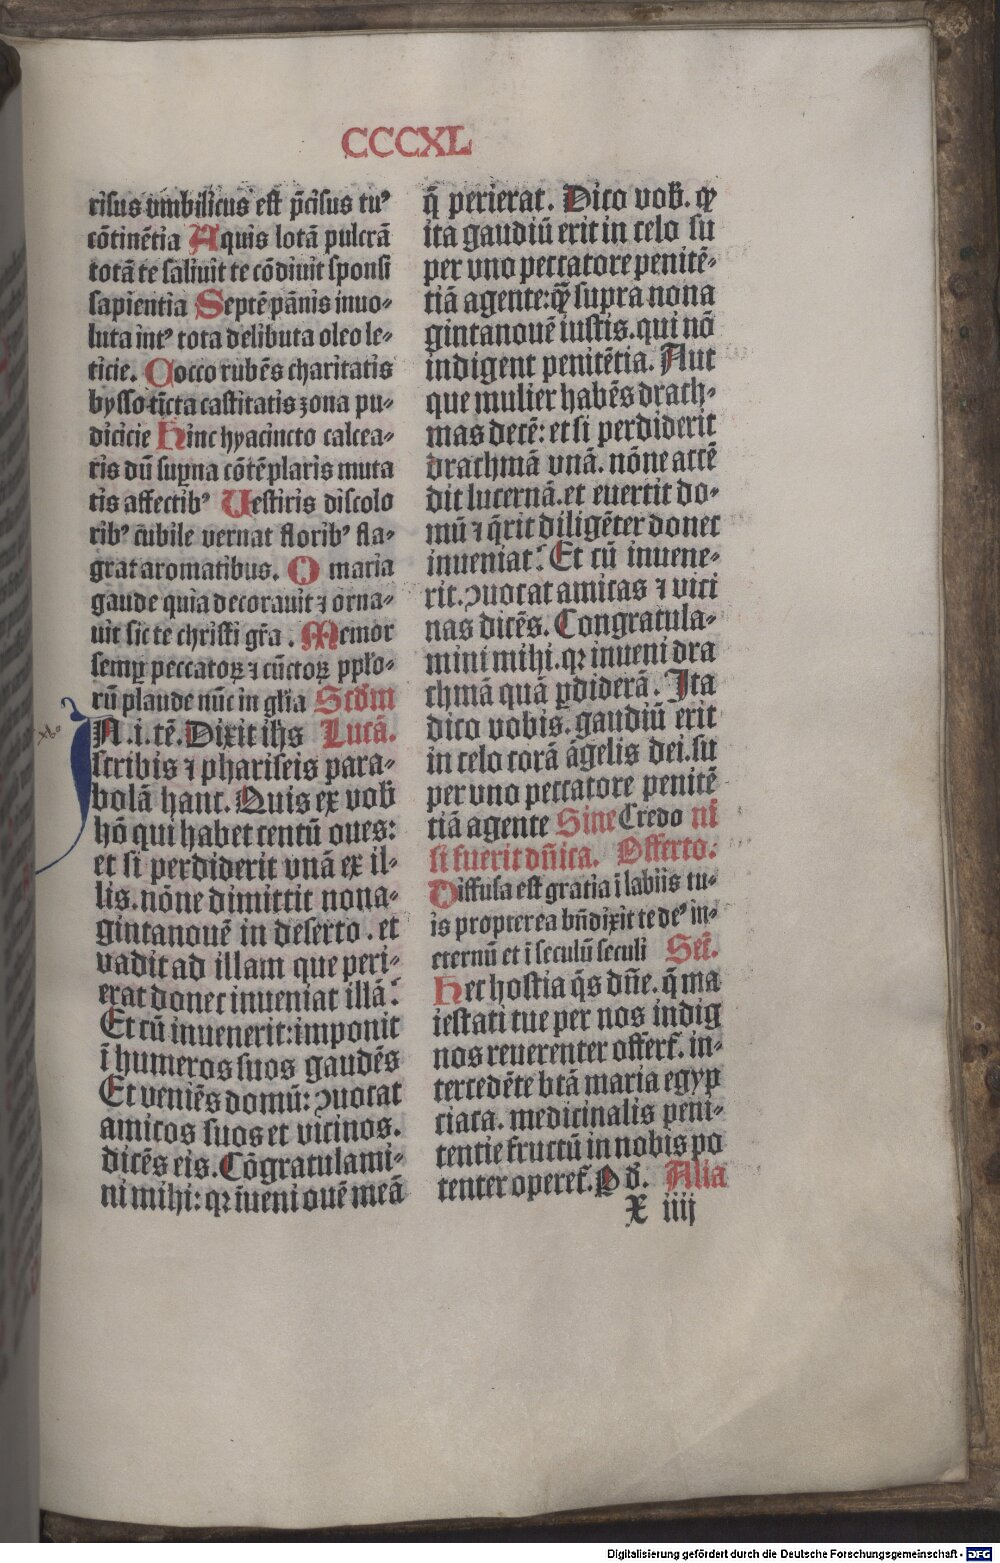 CCCXL
risus vmbilicus est p̄cisus tuꝰ
cōtinētia Aquis lotā pulcrā
totā te saliuit te cōdiuit sponsi
sapientia Septē pānis inuo-
luta intꝰ tota delibuta oleo le-
ticie. Cocco rubēs charitatis
bysso tīcta castitatis zona pu-
dicicie Hinc hyacincto calcea-
ris dū suꝑna cōtēplaris muta
tis affectibꝰ Uestiris discolo
ribꝰ cubile vernat floribꝰ fla-
grat aromatibus. O maria
gaude quia decorauit ⁊ orna-
uit sic te christi gr̄a. Memor
semꝑ peccatoꝝ ⁊ cūctoꝝ pplo-
rū plaude nūc in glīa Scdm̄
N.i.tē. Dixit ihs̄ Lucā.
scribis ⁊ phariseis para-
bolā hanc. Quis ex vob̄
hō qui habet centū oues:
et si perdiderit vnā ex il-
lis. nōne dimittit nona-
gintanouē in deserto. et
vadit ad illam que peri-
erat donec inueniat illā?
Et cū inuenerit: imponit
ī humeros suos gaudēs
Et veniēs domū: ꝯuocat
amicos suos et vicinos.
dicēs eis. Cōgratulami-
ni mihi: qꝛ īueni ouē meā
q̄ perierat. Dico vob̄. ꝙ
ita gaudiū erit in celo su
per vno peccatore penitē-
tiā agente: q̄ʒ supra nona
gintanouē iustis. qui nō
indigent penitētia. Aut
que mulier habēs drach-
mas decē: et si perdiderit
drachmā vnā. nōne accē
dit lucernā. et euertit do-
mū ⁊ q̄rit diligēter donec
inueniat? Et cū inuene-
rit. ꝯuocat amicas ⁊ vici
nas dicēs. Congratula-
mini mihi. qꝛ inueni dra
chmā quā ꝑdiderā. Ita
dico vobis. gaudiū erit
in celo corā āgelis dei. su
per vno peccatore penitē
tiā agente Sine Credo ni
si fuerit dn̄ica. Offerto.
Diffusa est gratia ī labiis tu-
is propterea bn̄dixit te deꝰ in-
eternū et ī seculū seculi Sec̄.
Hec hostia q̄s dn̄e. q̄ ma
iestati tue per nos indig
nos reuerenter offert̄. in-
tercedēte btā maria egyp
ciaca. medicinalis peni-
tentie fructū in nobis po
tenter operet̄. P d̄. Alia
X iiij
Digitalisierung gefördert durch die Deutsche Forschungsgemeinschaft - DFG